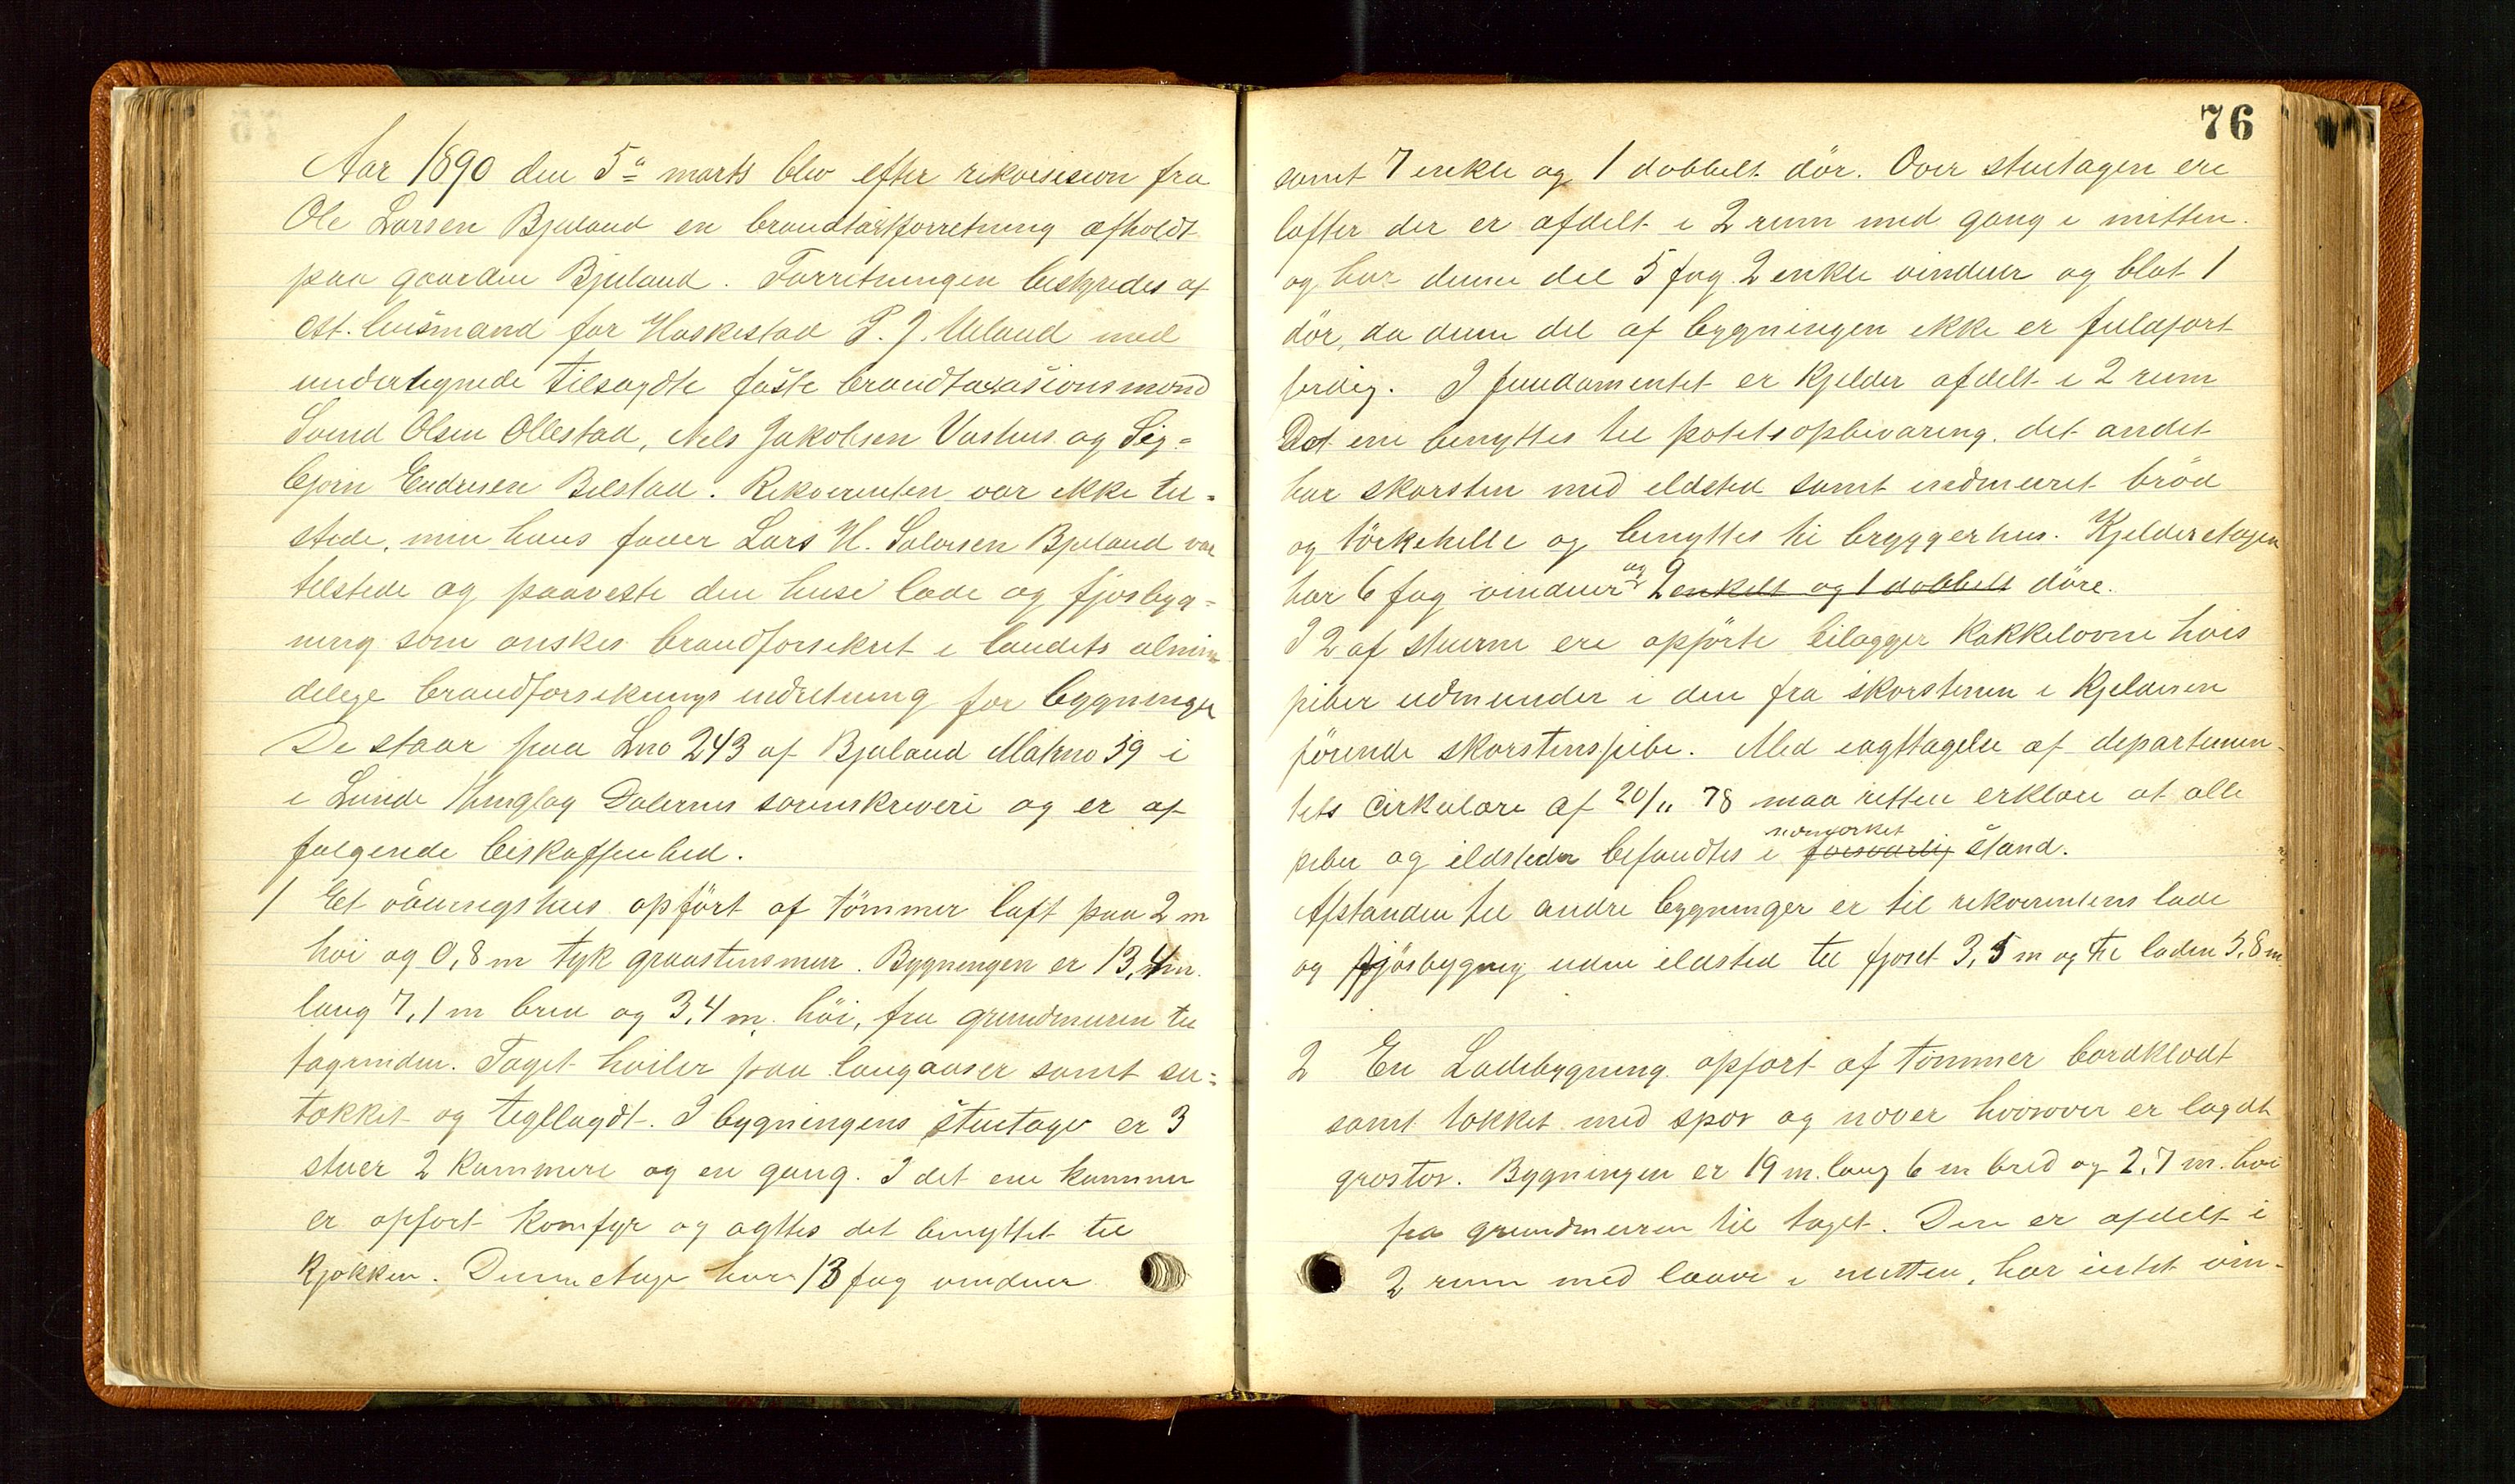 Aar 1890 den 5te marts blev efter rekvisision fra
Ole Larsen Bjuland en brandtaxtforretning afholdt
paa gaarden Bjuland. Forretningen bestyredes af
cst. lensmand for Heskestad P. J. Ueland med
undertegnede tilsagdte faste brandtaxasionsmend
Svend Olsen Ollestad, Nels Jakobsen Vashus og Sig=
bjørn Endresen Bilstad. Rekvirenten var ikke til=
stede, men hans fader Lars H. Salvesen Bjuland var
tilstede og paaviste den huse lade og fjosbyg=
ning som ønskes brandforsekret i landets almin
delige brandforsikrings indretning for bygninger
De staar paa Lno 243 af Bjuland Matrno 59 i
i Lunde thinglag Dalernes sorenskriveri og er af
følgende beskaffenhed.
1 Et vaaningshus opført af tömmer laft paa 2 m
høi og 0,8 m tyk graastensmur. Bygningen er 13,4 m.
lang 7,1 m bred og 3,4 m. höi, fra grundmuren til
tagrenden. Taget hviler paa langaaser samt su=
tækket og tegllagdt. I bygningens stuetage er 3
stuer 2 kammere og en gang. I det ene kammer
er opført komfyr og agttes det benyttet til
kjøkken. Denne etage har 13 fag vinduer
76
samt 7 enkle og 1 dobbelt dör. Over stuetagen ere
lofter der er afdelt i 2 rum med gang i mitten.
og har denne del 5 fag 2 enkle vinduer og blot 1
dör, da denne del af bygningen ikke er fuldført
ferdig. I fundamentet er kjelder afdelt i 2 rum
Det ene benyttes til potetsopbevaring. det andet
har skorsten med ildsted samt indmuret bröd
og törkehelle og benyttes til bryggerhus. Kjelderetagen
har 6 fag vinduer og 2 enkelt og 1 dobbelt döre.
I 2 af stuerne ere opførte bilægger kakkelovne hvis
piber udmunder i den fra skorstenen i kjelderen
førende skorstenspibe. Med iagttagelse af departemen-
tets cirkulære af 20/11 78 maa retten erklære at alle
piber og ildsteder befandtes i udmerket forsvarlig stand.
Afstanden til andre bygninger er til rekvirentens lade
og fjösbygnig uden ildsted til fjoset 3,5 m og til laden 3,8 m.
2 En Ladebygning opført af tømmer bordklædt
samt tækket med spøv og nøver hvorover er lagdt
græstør. Bygningen er 19 m. lang 6 m bred og 2,7 m. høi
fra grundmuren til taget. Den er afdelt i
2 rum med laave i mitten, har intet vin-